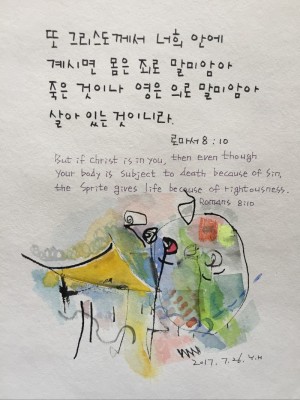 또 그리스도께서 너희 안에
계시면 몸은 죄로 말미암아
죽은 것이나 영은 의로 말미암아
살아 있는 것이니라.
로마서 8 : 10
But if Christ is in you, then even though
Your body is subject to death because of Sin,
the Sprite gives life because of rightousness.
Romans 8:10
2017. 7. 26. Y.H